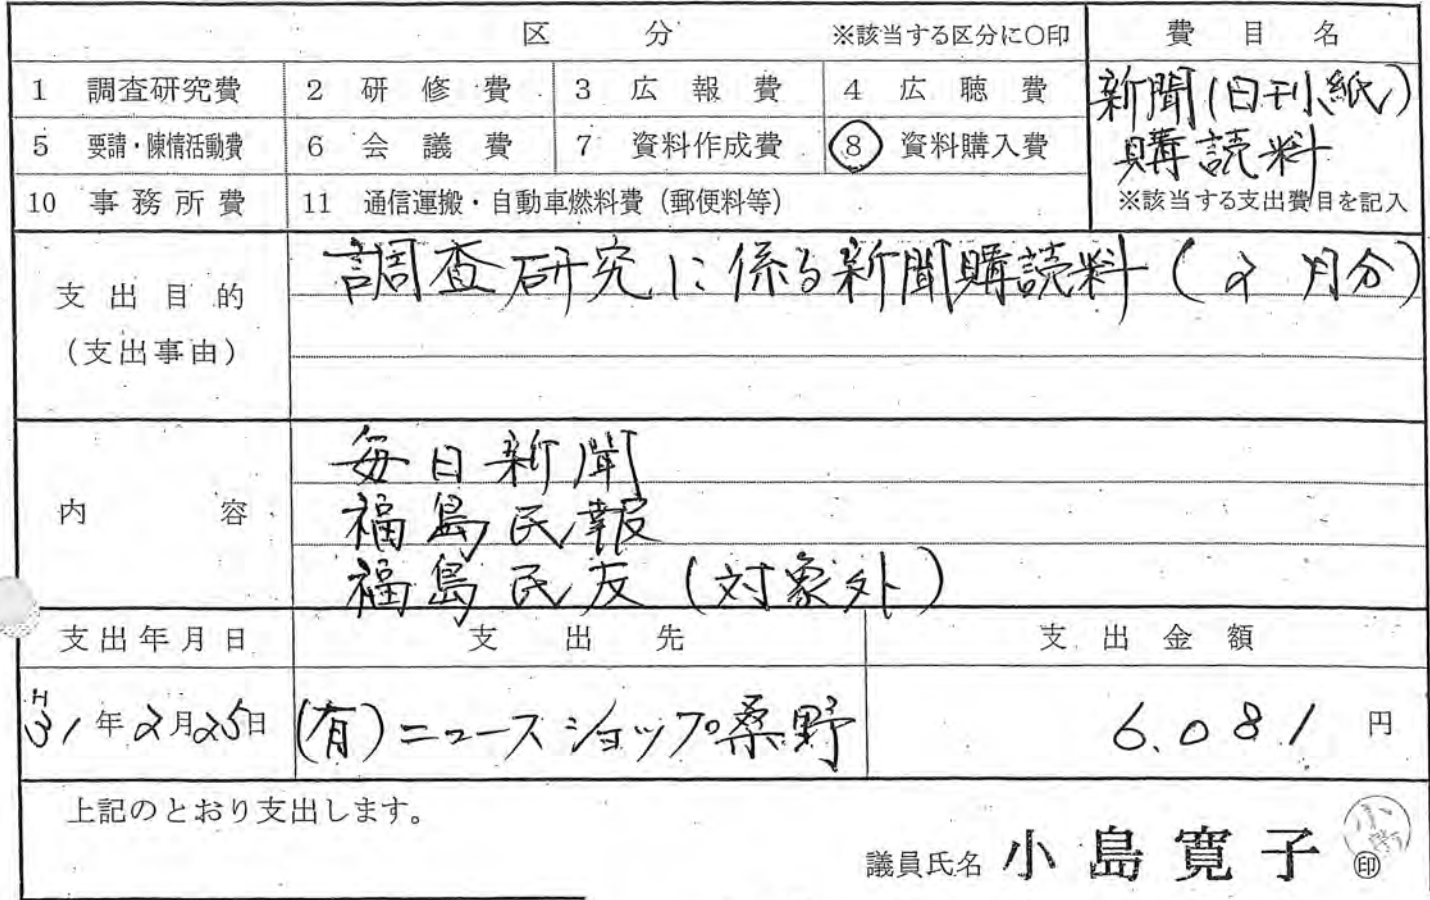 区 分 ※該当する区分に○印 費 目 名
1 調査研究費 2 研 修 費 3 広 報 費 4 広 聴 費 新聞(日刊紙)
5 要請・陳情活動費 6 会 議 費 7 資料作成費 ⑧ 資料購入費 購読料
10 事務所費 11 通信運搬・自動車燃料費(郵便料等) ※該当する支出費目を記入
支出目的 調査研究に係る新聞購読料(2月分)
(支出事由)
毎日新聞
内 容 福島民報
福島民友(対象外)
支出年月日 支 出 先 支 出 金 額
H31年2月25日 (有)ニュースショップ桑野 6.081 円
上記のとおり支出します。
議員氏名 小島寛子 ㊞